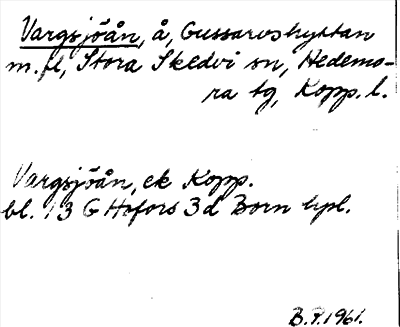 Vargsjöån, å, Gussarvshyttan
m.fl, Stora Skedvi sn, Hedemo-
ra tg, Kopp. l.
Vargsjöån, ek Kopp.
bl. 13 G Hofors 3 d Born hpl.
B.P. 1961.